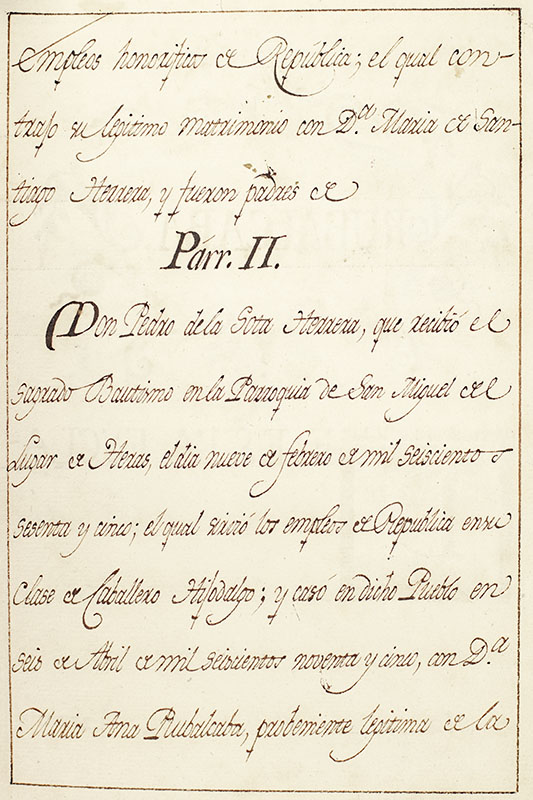 empleos honorificos de Republica; el qual con-
trajo su legitimo matrimonio con D.ª Maria de San-
tiago Herrera, y fueron padres de
Párr. II.
Don Pedro de la Sota Herrera, que recibió el
sagrado Bautismo en la Parroquia de San Miguel del
Lugar de Heras, el dia nueve de febrero de mil seiscientos
sesenta y cinco; el qual sirvió los empleos de Republica en su
Clase de Caballero Hijodalgo; y casó en dicho Pueblo en
seis de Abril de mil seiscientos noventa y cinco, con D.ª
Maria Ana Rubalcaba, probeniente legitima de la